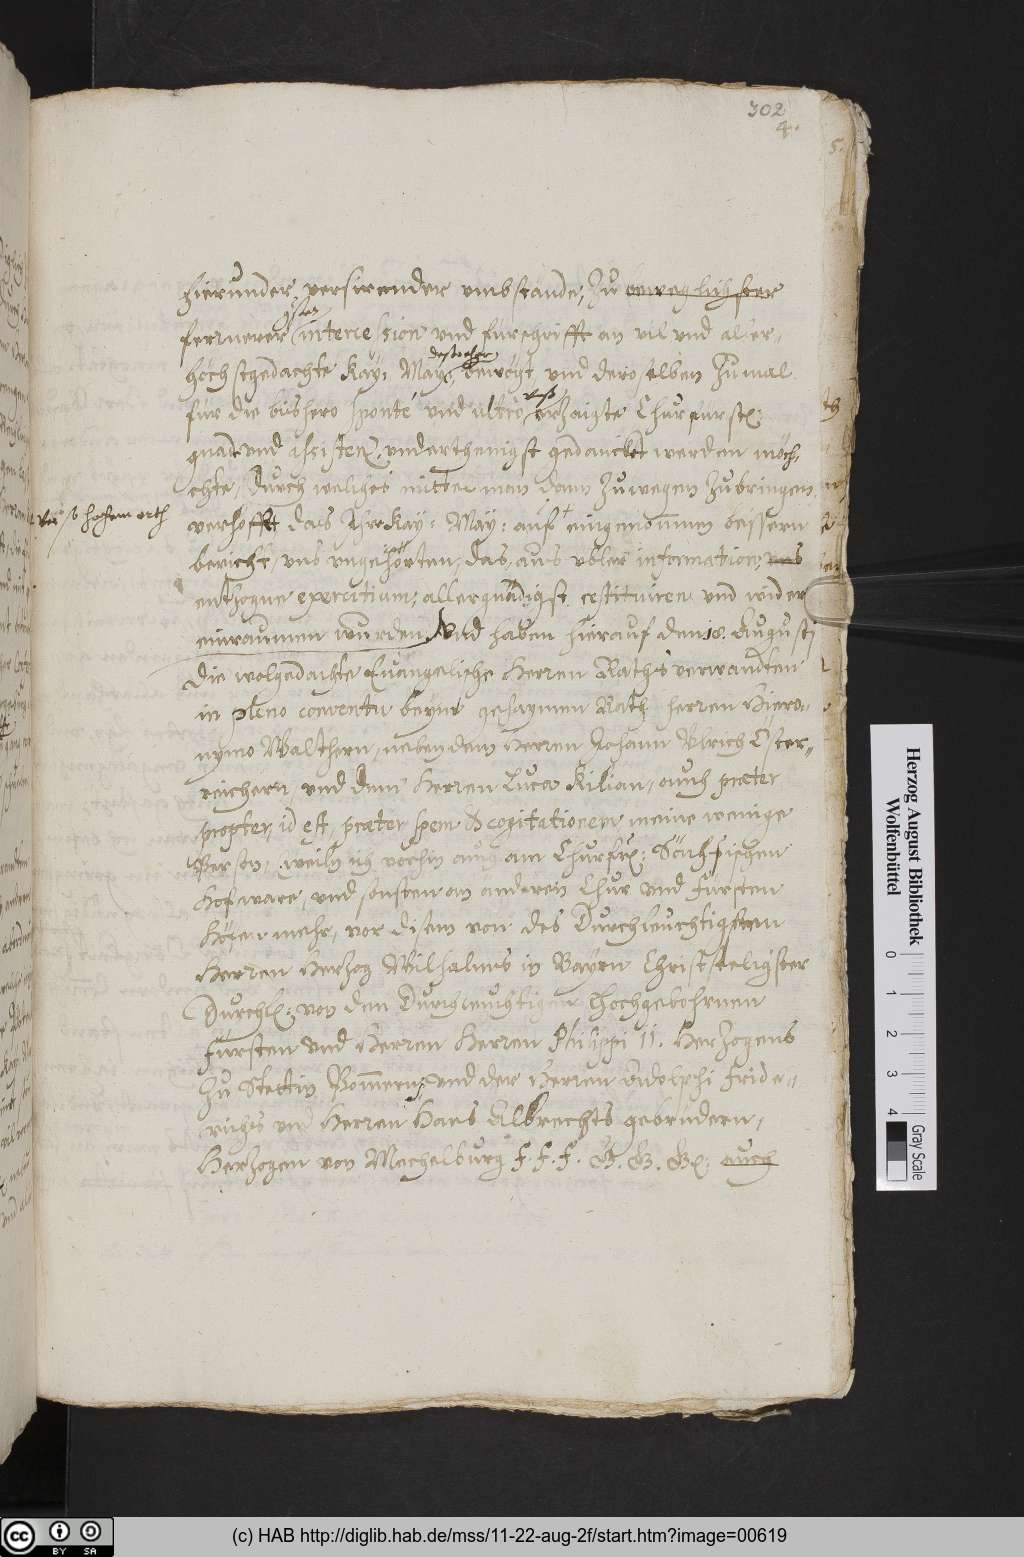 302
4.
hierunder versirender umbstände, zu beweglichster
fernerer intercession und fürschrifft an vil und aller-
höchstgedachte Kay: May: bewögt, und deroselben zumal
für die bishero sponté und ultro erzaigte Churfürstl:
gnad und assistenz, underthenigst gedanckt werden möch-
chte, durch welches mittel man dann zuwegen zubringen
verhofft das Ihr Kay: May: auf eingenommen bessern
bericht, uns ungehörten, das, aus ubler information, uns
enthzogne exercitium, allergnädigst restituiren und wider
einraumen wurden, Und haben hierauf den 18. Augusti
die wolgedachte Euangelische Herren Raths verwandten
in pleno conventu beyne gehaymen Rath herren Hiero-
nymo Walthern, neben dem Herren Johann Ulrich Öster-
reichern, und dem Herren Luca Kilian, auch præter
propter, id est, præter spem & cogitationem meine wenige
Person, weiln ich vorhin auch am Churfrl: Sächsischen
Hof ware, und sonsten an anderen Chur und Fürsten
Höfen mehr, vor disem von des Durchleuchtigsten
Herren Herzog Wilhalms in Bayrn Christseeligster
Durchl: von den Durchleuchtigen Hochgebohrnen
Fürsten und Herren Herren Philippi II. Herzogens
zu Stettin Pommern, und der Herren Adolphi Fride-
richs und Herren Hans Albrechts gebrüdern,
Herzogen von Mechelburg F. F. F. G. G. G: auch
vor so hochem orth
5.
Herzog August Bibliothek
Wolfenbüttel
0 1 2 3 4
Gray Scale
cc BY SA
(c) HAB http://diglib.hab.de/mss/11-22-aug-2f/start.htm?image=00619